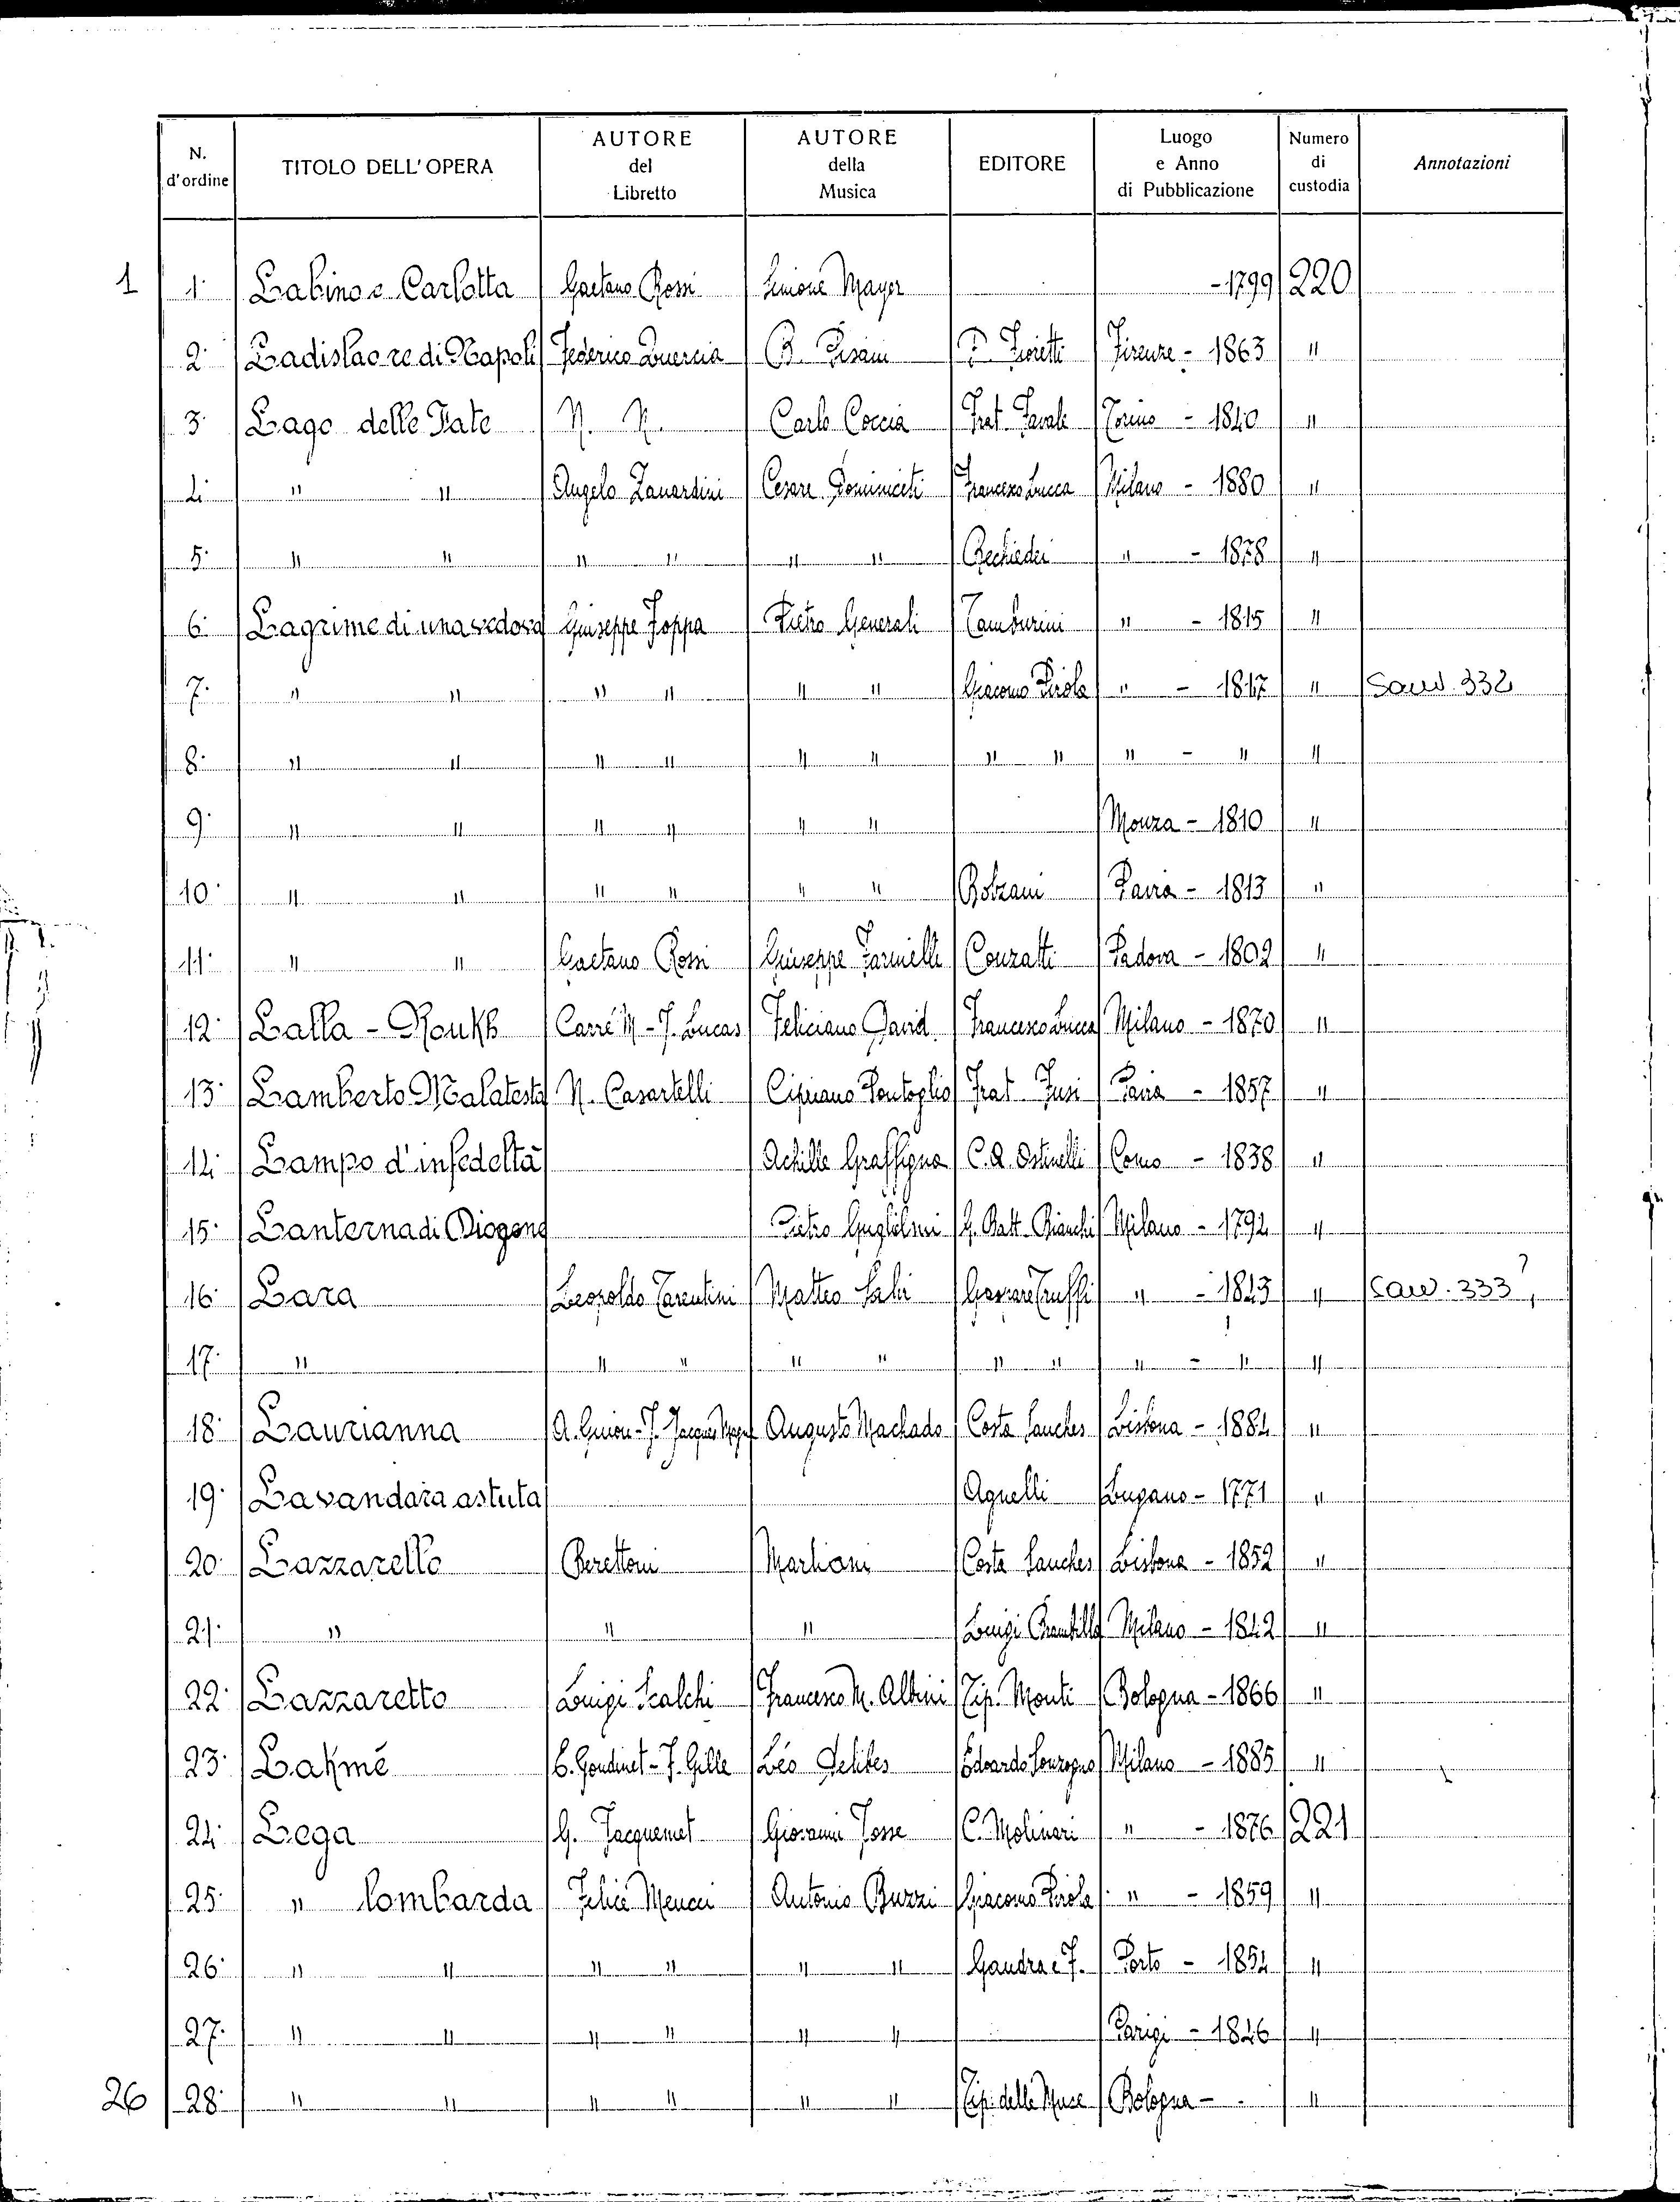 N. d'ordine | TITOLO DELL'OPERA | AUTORE del Libretto | AUTORE della Musica | EDITORE | Luogo e Anno di Pubblicazione | Numero di custodia | Annotazioni
1 | 1 | Labino e Carlotta | Gaetano Rossi | Simone Mayer | | - 1799 | 220
2 | Ladislao re di Napoli | Federico Quercia | B. Pisani | P. Fioretti | Firenze - 1863 | "
3 | Lago delle Fate | N. N. | Carlo Coccia | Frat. Favale | Torino - 1840 | "
4 | " " | Angelo Zanardini | Cesare Dominiceti | Francesco Lucca | Milano - 1880 | "
5 | " " | " " | " " | Rechiedei | " - 1878 | "
6 | Lagrime di una vedova | Giuseppe Foppa | Pietro Generali | Tamburini | " - 1815 | "
7 | " " | " " | " " | Giacomo Pirola | " - 1817 | " | Sauv. 332
8 | " " | " " | " " | " " | " - " | "
9 | " " | " " | " " | | Monza - 1810 | "
10 | " " | " " | " " | Bolzani | Pavia - 1813 | "
11 | " " | Gaetano Rossi | Giuseppe Farinelli | Conzatti | Padova - 1802 | "
12 | Lalla - Roukh | Carré M - J. Lucas | Feliciano David | Francesco Lucca | Milano - 1870 | "
13 | Lamberto Malatesta | N. Casartelli | Cipriano Pontoglio | Frat. Fusi | Pavia - 1857 | "
14 | Lampo d'infedeltà | | Achille Graffigna | C. A. Ostinelli | Como - 1838 | "
15 | Lanterna di Diogene | | Pietro Guglielmi | G. Batt. Bianchi | Milano - 1792 | "
16 | Lara | Leopoldo Tarantini | Matteo Salvi | Gaspare Truffi | " - 1843 | " | Sauv. 333 ?
17 | " | " " | " " | " " | " - " | "
18 | Laurianna | A. Guiou - J. Jacques | Augusto Machado | Costa Sanches | Lisbona - 1884 | "
19 | Lavandara astuta | | | Agnelli | Lugano - 1771 | "
20 | Lazzarello | Berettoni | Marliani | Costa Sanches | Lisbona - 1852 | "
21 | " | " | " | Luigi Brambilla | Milano - 1842 | "
22 | Lazzaretto | Luigi Scalchi | Francesco M. Albini | Tip. Monti | Bologna - 1866 | "
23 | Lakmé | E. Gondinet - F. Gille | Léo Delibes | Edoardo Sonzogno | Milano - 1885 | "
24 | Lega | G. Jacquemet | Giovanni Josse | C. Molinari | " - 1876 | 221
25 | " lombarda | Felice Meucci | Antonio Buzzi | Giacomo Pirola | " - 1859 | "
26 | " " | " " | " " | Gandra e F. | Porto - 1854 | "
27 | " " | " " | " " | | Parigi - 1846 | "
26 | 28 | " " | " " | " " | Tip. delle Muse | Bologna - | "